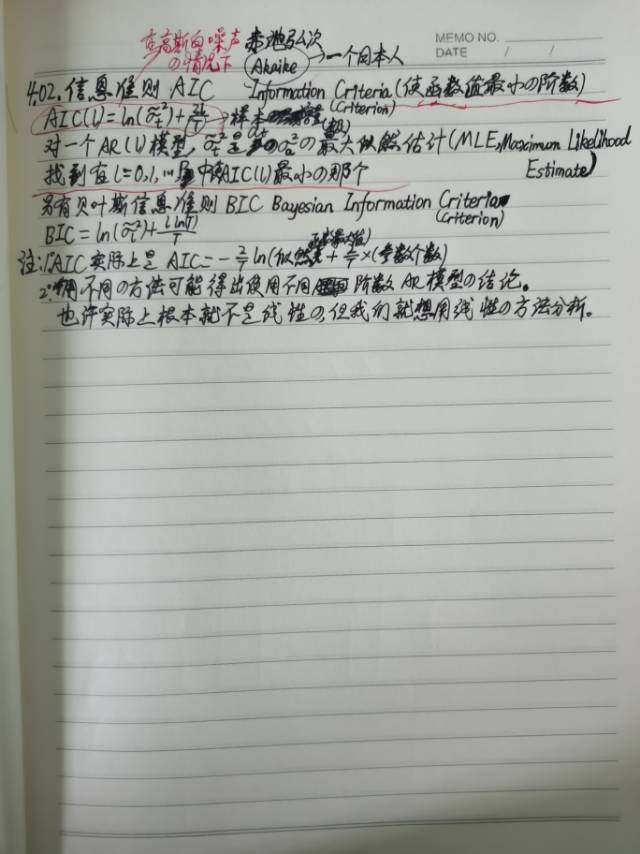 在高斯白噪声の情况下
赤池弘次
MEMO NO.
DATE / /
Akaike → 一个日本人
4.02. 信息准则 AIC Information Criteria (使函数值最小の阶数)
(Criterion)
AIC(l)=ln(σ̃ₗ²)+2l/T → 样本
对一个AR(l)模型, σ̃ₗ²是σₐ²の最大似然估计(MLE, Maximum Likelihood Estimate)
找到在l=0,1,…中AIC(l)最小の那个
另有贝叶斯信息准则 BIC Bayesian Information Criteria
(Criterion)
BIC = ln(σ̃ₗ²)+l ln(T)/T
注:1.AIC实际上是 AIC=-2/T ln(似然 + 2/T×(参数个数)
2.用不同の方法可能得出使用不同阶数AR模型の结论。
也许实际上根本就不是线性の,但我们就想用线性の方法分析。